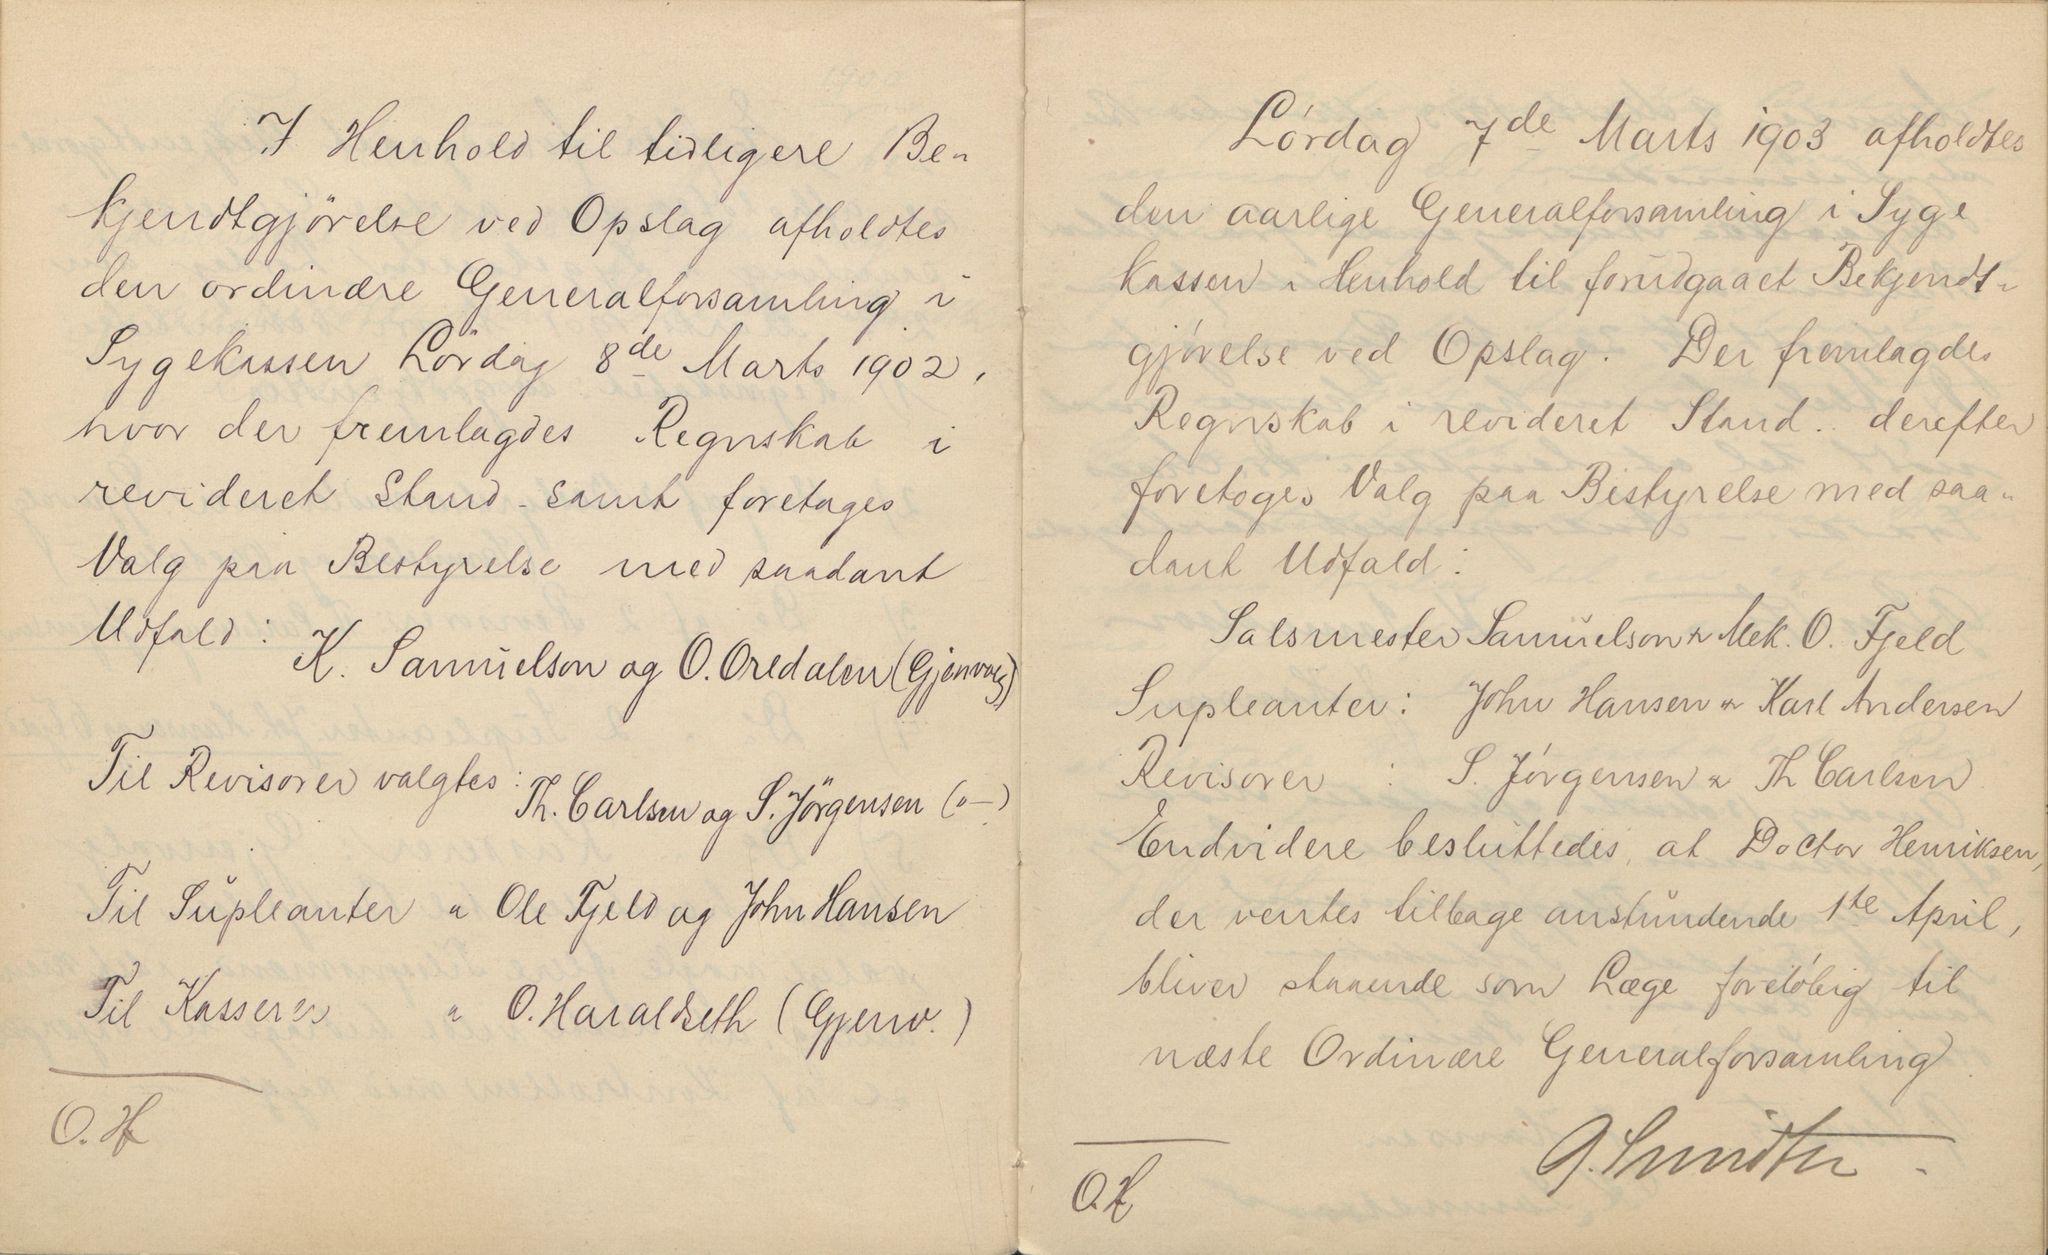 I Henhold til tidligere Be-
kjendtgjörelse ved Opslag afholdtes
den ordinære Generalforsamling i
Sygekassen Lördag 8de Marts 1902,
hvor der fremlagdes Regnskab i
revideret Stand - samt foretages
Valg paa Bestyrelse med saadant
Udfald:
K. Samuelson og O. Oredalen (Gjenvalg)
Til Revisorer valgtes:
Th. Carlsen og S. Jörgensen (〃—)
Til Supleanter 〃 Ole Fjeld og John Hansen
Til Kasserer 〃 O. Haraldseth (Gjenv.)
O. H
Lórdag 7de Marts 1903 afholdtes
den aarlige Generalforsamling i Syge
kassen i Henhold til forudgaaet Bekjendt-
gjórelse ved Opslag. Der fremlagdes
Regnskab i revideret Stand.. derefter
foretoges Valg paa Bestyrelse med saa-
dant Udfald:
Salsmester Samuelson & Mek. O. Fjeld
Supleanter: John Hansen & Karl Andersen
Revisorer : S. Jórgensen & Th Carlsen
Endvidere besluttedes, at Doctor Henriksen,
der ventes tilbage anstundende 1te April,
bliver staaende som Læge forelóbig til
næste Ordinære Generalforsamling.
O.H.